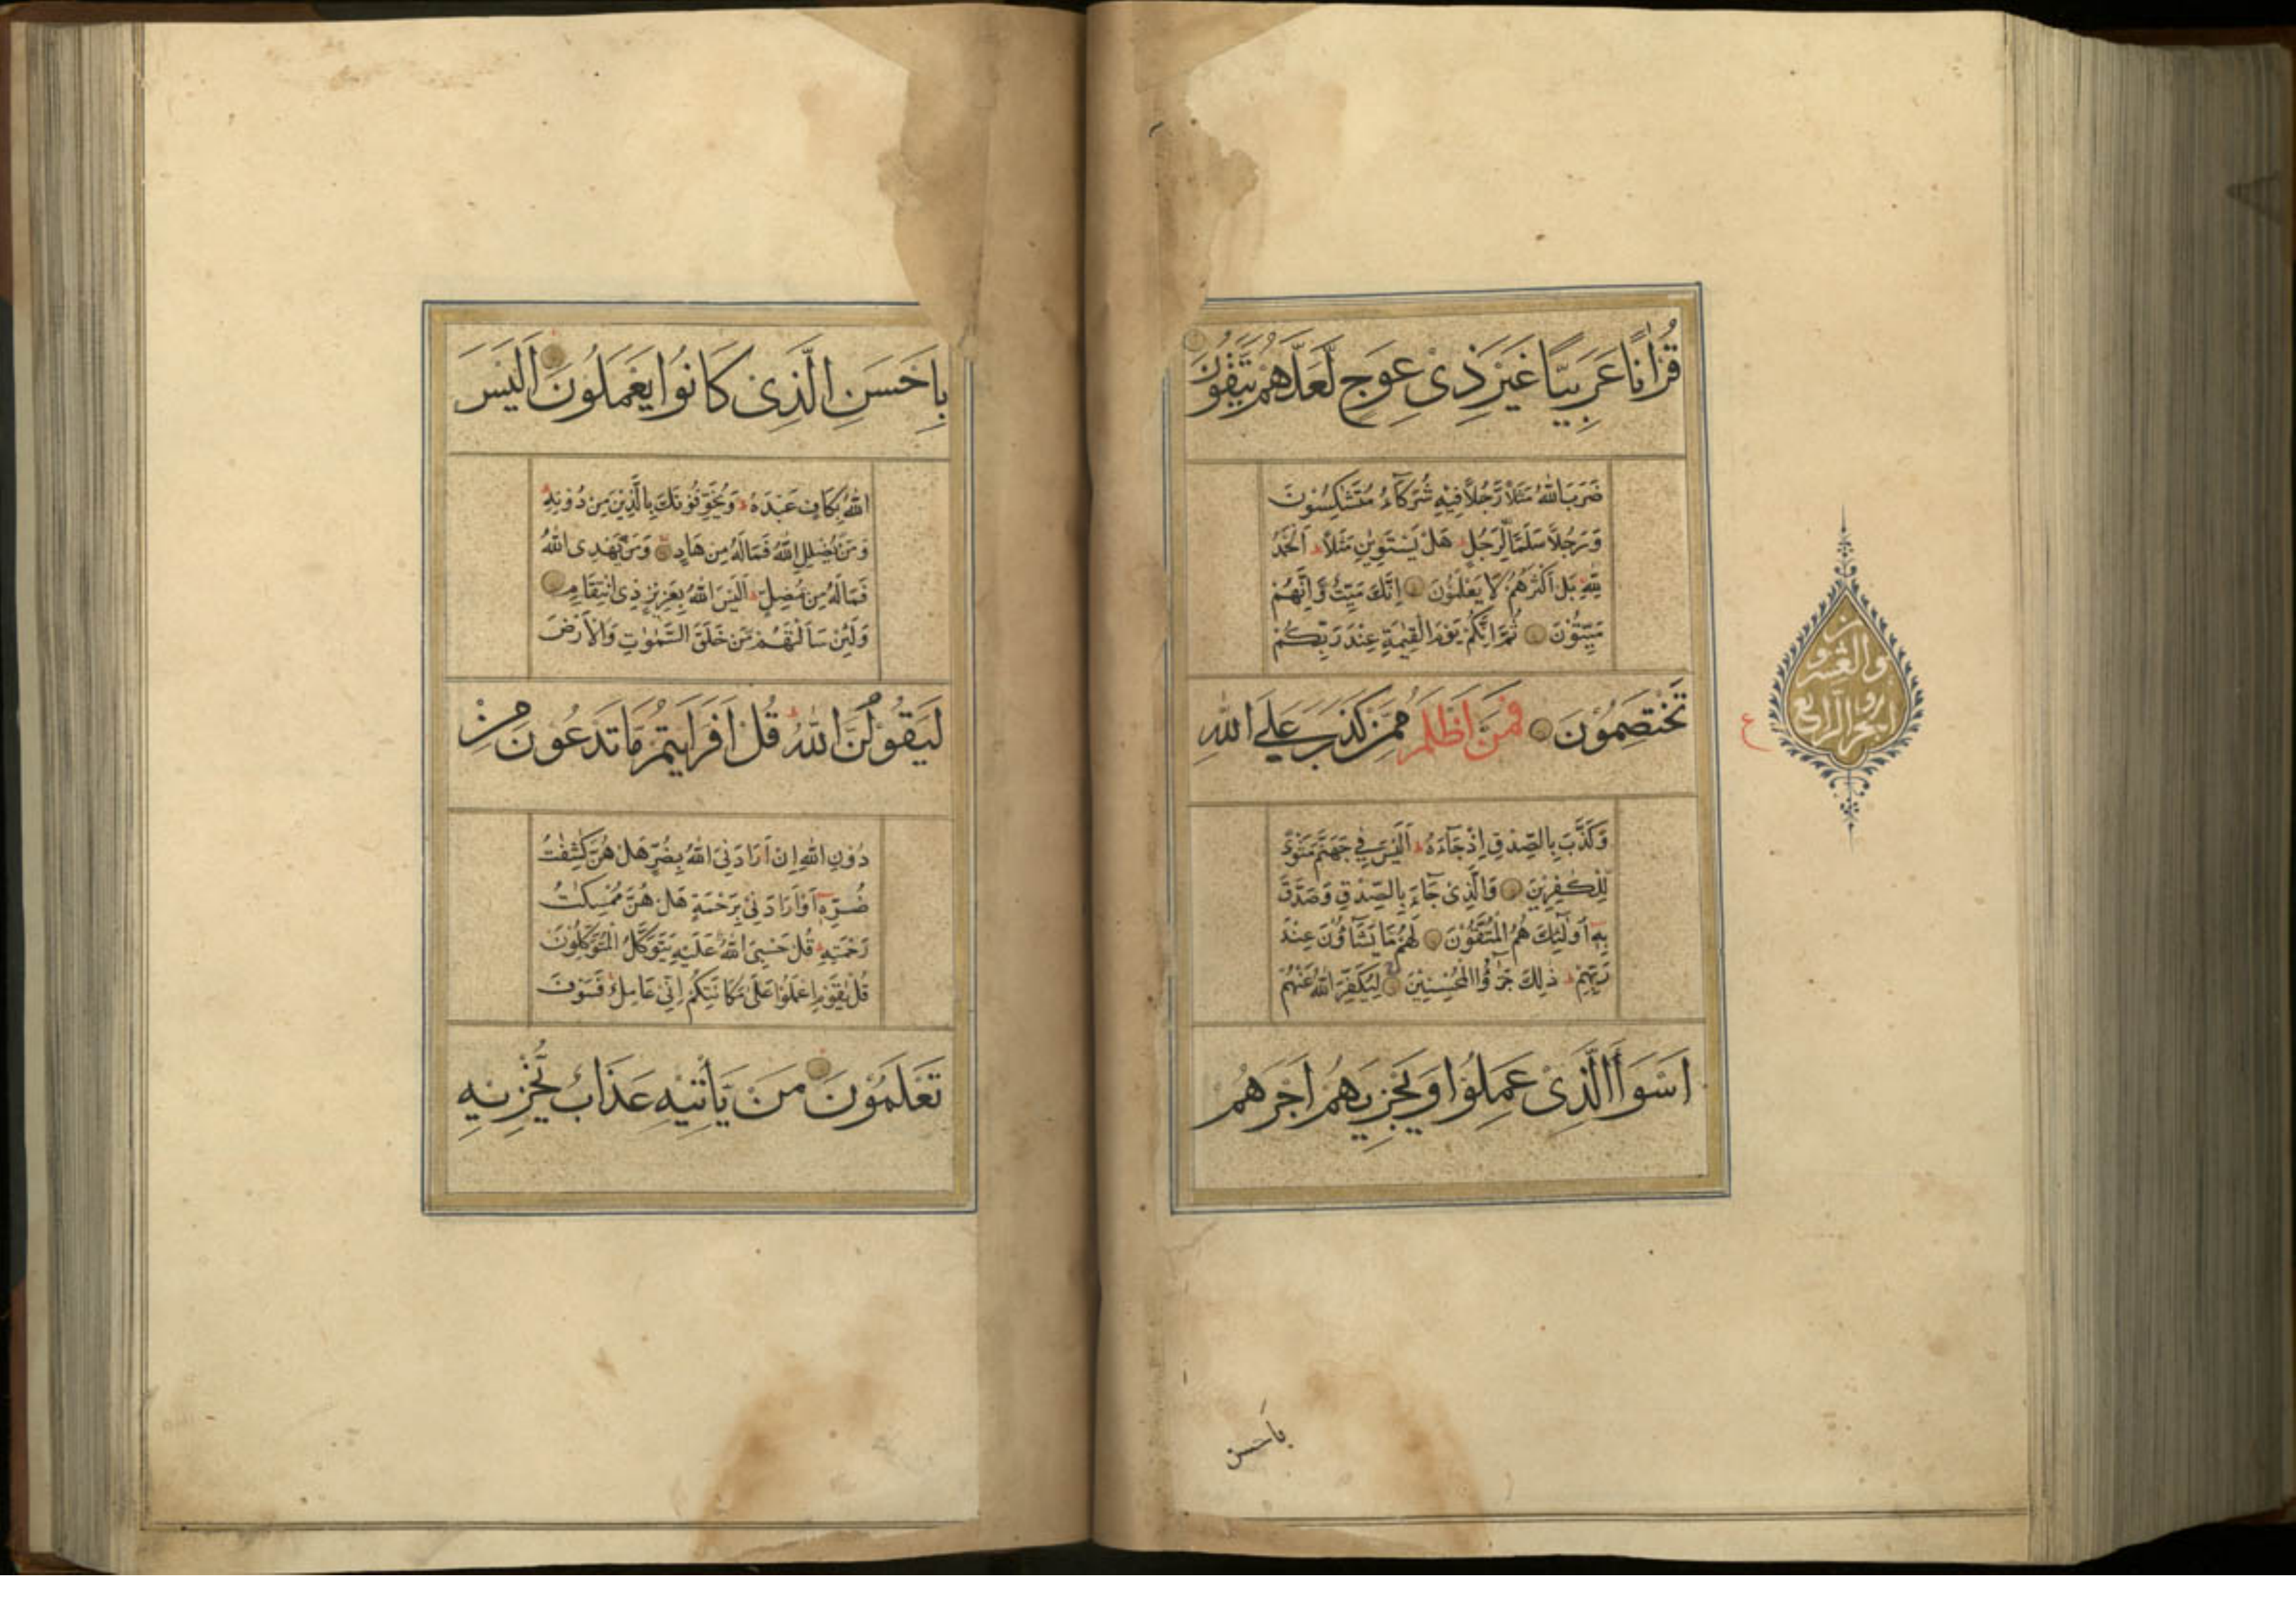 قُرْاٰنًا عَرَبِيًّا غَيْرَ ذِىْ عِوَجٍ لَّعَلَّهُمْ يَتَّقُوْنَ
ضَرَبَ اللّٰهُ مَثَلًا رَّجُلًا فِيْهِ شُرَكَآءُ مُتَشٰكِسُوْنَ
وَرَجُلًا سَلَمًا لِّرَجُلٍ هَلْ يَسْتَوِيٰنِ مَثَلًا اَلْحَمْدُ
لِلّٰهِ بَلْ اَكْثَرُهُمْ لَا يَعْلَمُوْنَ اِنَّكَ مَيِّتٌ وَّاِنَّهُمْ
مَيِّتُوْنَ ثُمَّ اِنَّكُمْ يَوْمَ الْقِيٰمَةِ عِنْدَ رَبِّكُمْ
تَخْتَصِمُوْنَ فَمَنْ اَظْلَمُ مِمَّنْ كَذَبَ عَلَى اللّٰهِ
وَكَذَّبَ بِالصِّدْقِ اِذْ جَآءَهُ اَلَيْسَ فِيْ جَهَنَّمَ مَثْوًى
لِّلْكٰفِرِيْنَ وَالَّذِىْ جَآءَ بِالصِّدْقِ وَصَدَّقَ
بِهٖ اُولٰٓئِكَ هُمُ الْمُتَّقُوْنَ لَهُمْ مَا يَشَآؤُنَ عِنْدَ
رَبِّهِمْ ذٰلِكَ جَزٰٓؤُا الْمُحْسِنِيْنَ لِيُكَفِّرَ اللّٰهُ عَنْهُمْ
اَسْوَاَ الَّذِىْ عَمِلُوْا وَيَجْزِيَهُمْ اَجْرَهُمْ
الجزو الرابع
والعشرون
ع
باحسن
بِاَحْسَنِ الَّذِىْ كَانُوْا يَعْمَلُوْنَ اَلَيْسَ
اللّٰهُ بِكَافٍ عَبْدَهُ وَيُخَوِّفُوْنَكَ بِالَّذِيْنَ مِنْ دُوْنِهٖ
وَمَنْ يُّضْلِلِ اللّٰهُ فَمَا لَهُ مِنْ هَادٍ وَمَنْ يَّهْدِى اللّٰهُ
فَمَا لَهُ مِنْ مُّضِلٍّ اَلَيْسَ اللّٰهُ بِعَزِيْزٍ ذِى انْتِقَامٍ
وَلَئِنْ سَاَلْتَهُمْ مَّنْ خَلَقَ السَّمٰوٰتِ وَالْاَرْضَ
لَيَقُوْلُنَّ اللّٰهُ قُلْ اَفَرَاَيْتُمْ مَّا تَدْعُوْنَ مِنْ
دُوْنِ اللّٰهِ اِنْ اَرَادَنِيَ اللّٰهُ بِضُرٍّ هَلْ هُنَّ كٰشِفٰتُ
ضُرِّهٖٓ اَوْ اَرَادَنِيْ بِرَحْمَةٍ هَلْ هُنَّ مُمْسِكٰتُ
رَحْمَتِهٖ قُلْ حَسْبِىَ اللّٰهُ عَلَيْهِ يَتَوَكَّلُ الْمُتَوَكِّلُوْنَ
قُلْ يٰقَوْمِ اعْمَلُوْا عَلٰى مَكَانَتِكُمْ اِنِّيْ عَامِلٌ فَسَوْفَ
تَعْلَمُوْنَ مَنْ يَّاْتِيْهِ عَذَابٌ يُّخْزِيْهِ